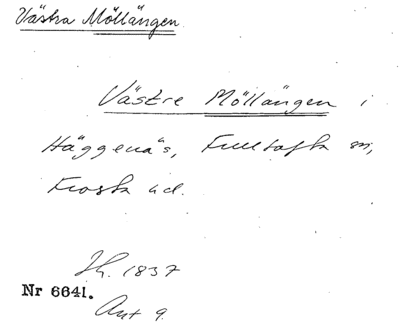 Västra Möllängen
Västre Möllängen i
Häggenäs, Fulltofta sn,
Frosta hd.
Sk. 1837
Nr 6641.
Akt 9.